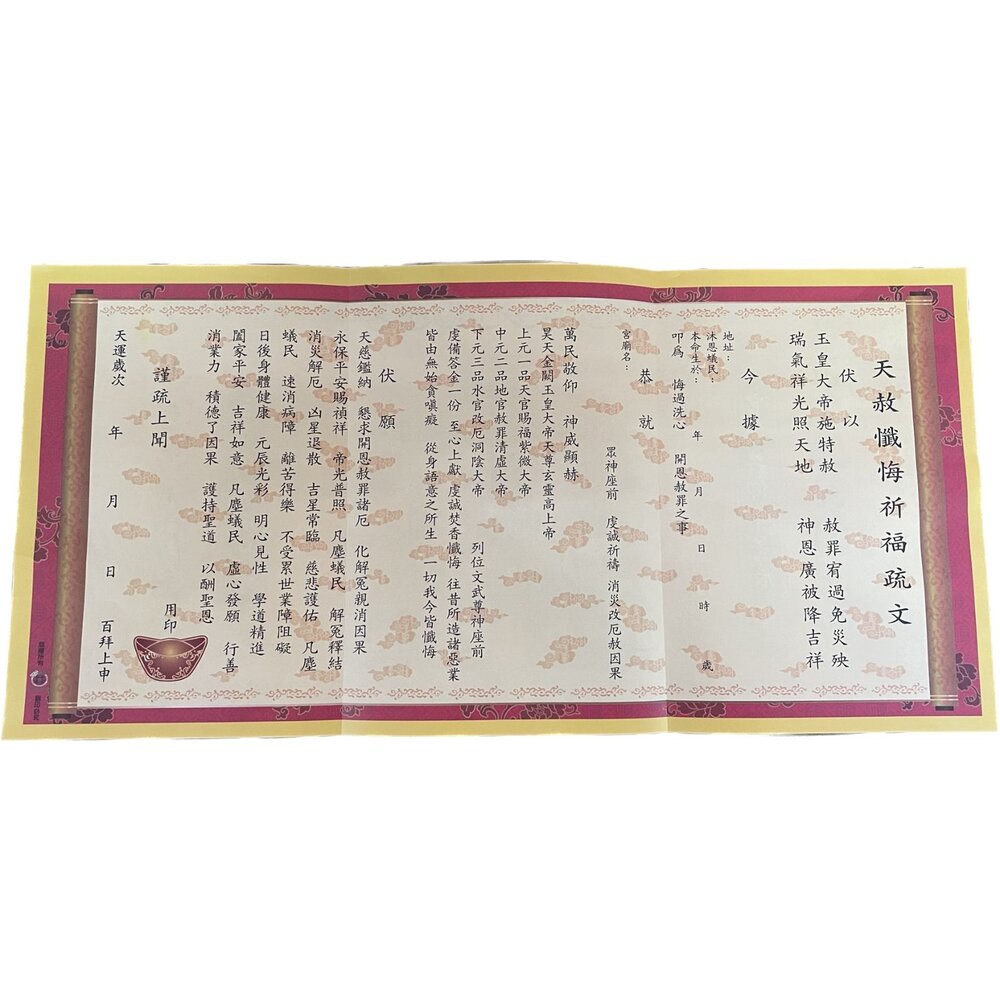 天赦懺悔祈福疏文
伏以
玉皇大帝施特赦　赦罪宥過免災殃
瑞氣祥光照天地　神恩廣被降吉祥
今據
地址：
沐恩蟻民：
本命生於：　年　月　日　時　歲
叩為　悔過洗心　開恩赦罪之事
恭就
宮廟名：　眾神座前　虔誠祈禱　消災改厄赦因果
萬民敬仰　神威顯赫
昊天金闕玉皇大帝天尊玄靈高上帝
上元一品天官賜福紫微大帝
中元二品地官赦罪清虛大帝
下元三品水官改厄洞陰大帝　列位文武尊神座前
虔備答金一份　至心上獻　虔誠焚香懺悔　往昔所造諸惡業
皆由無始貪嗔癡　從身語意之所生　一切我今皆懺悔
伏願
天慈鑑納　懇求開恩赦罪諸厄　化解冤親消因果
永保平安賜禎祥　帝光普照　凡塵蟻民　解冤釋結
消災解厄　凶星退散　吉星常臨　慈悲護佑　凡塵
蟻民　速消病障　離苦得樂　不受累世業障阻礙
日後身體健康　元辰光彩　明心見性　學道精進
闔家平安　吉祥如意　凡塵蟻民　虛心發願　行善
消業力　積德了因果　護持聖道　以酬聖恩
謹疏上聞　用印
天運歲次　年　月　日　百拜上申
版權所有
翻印必究